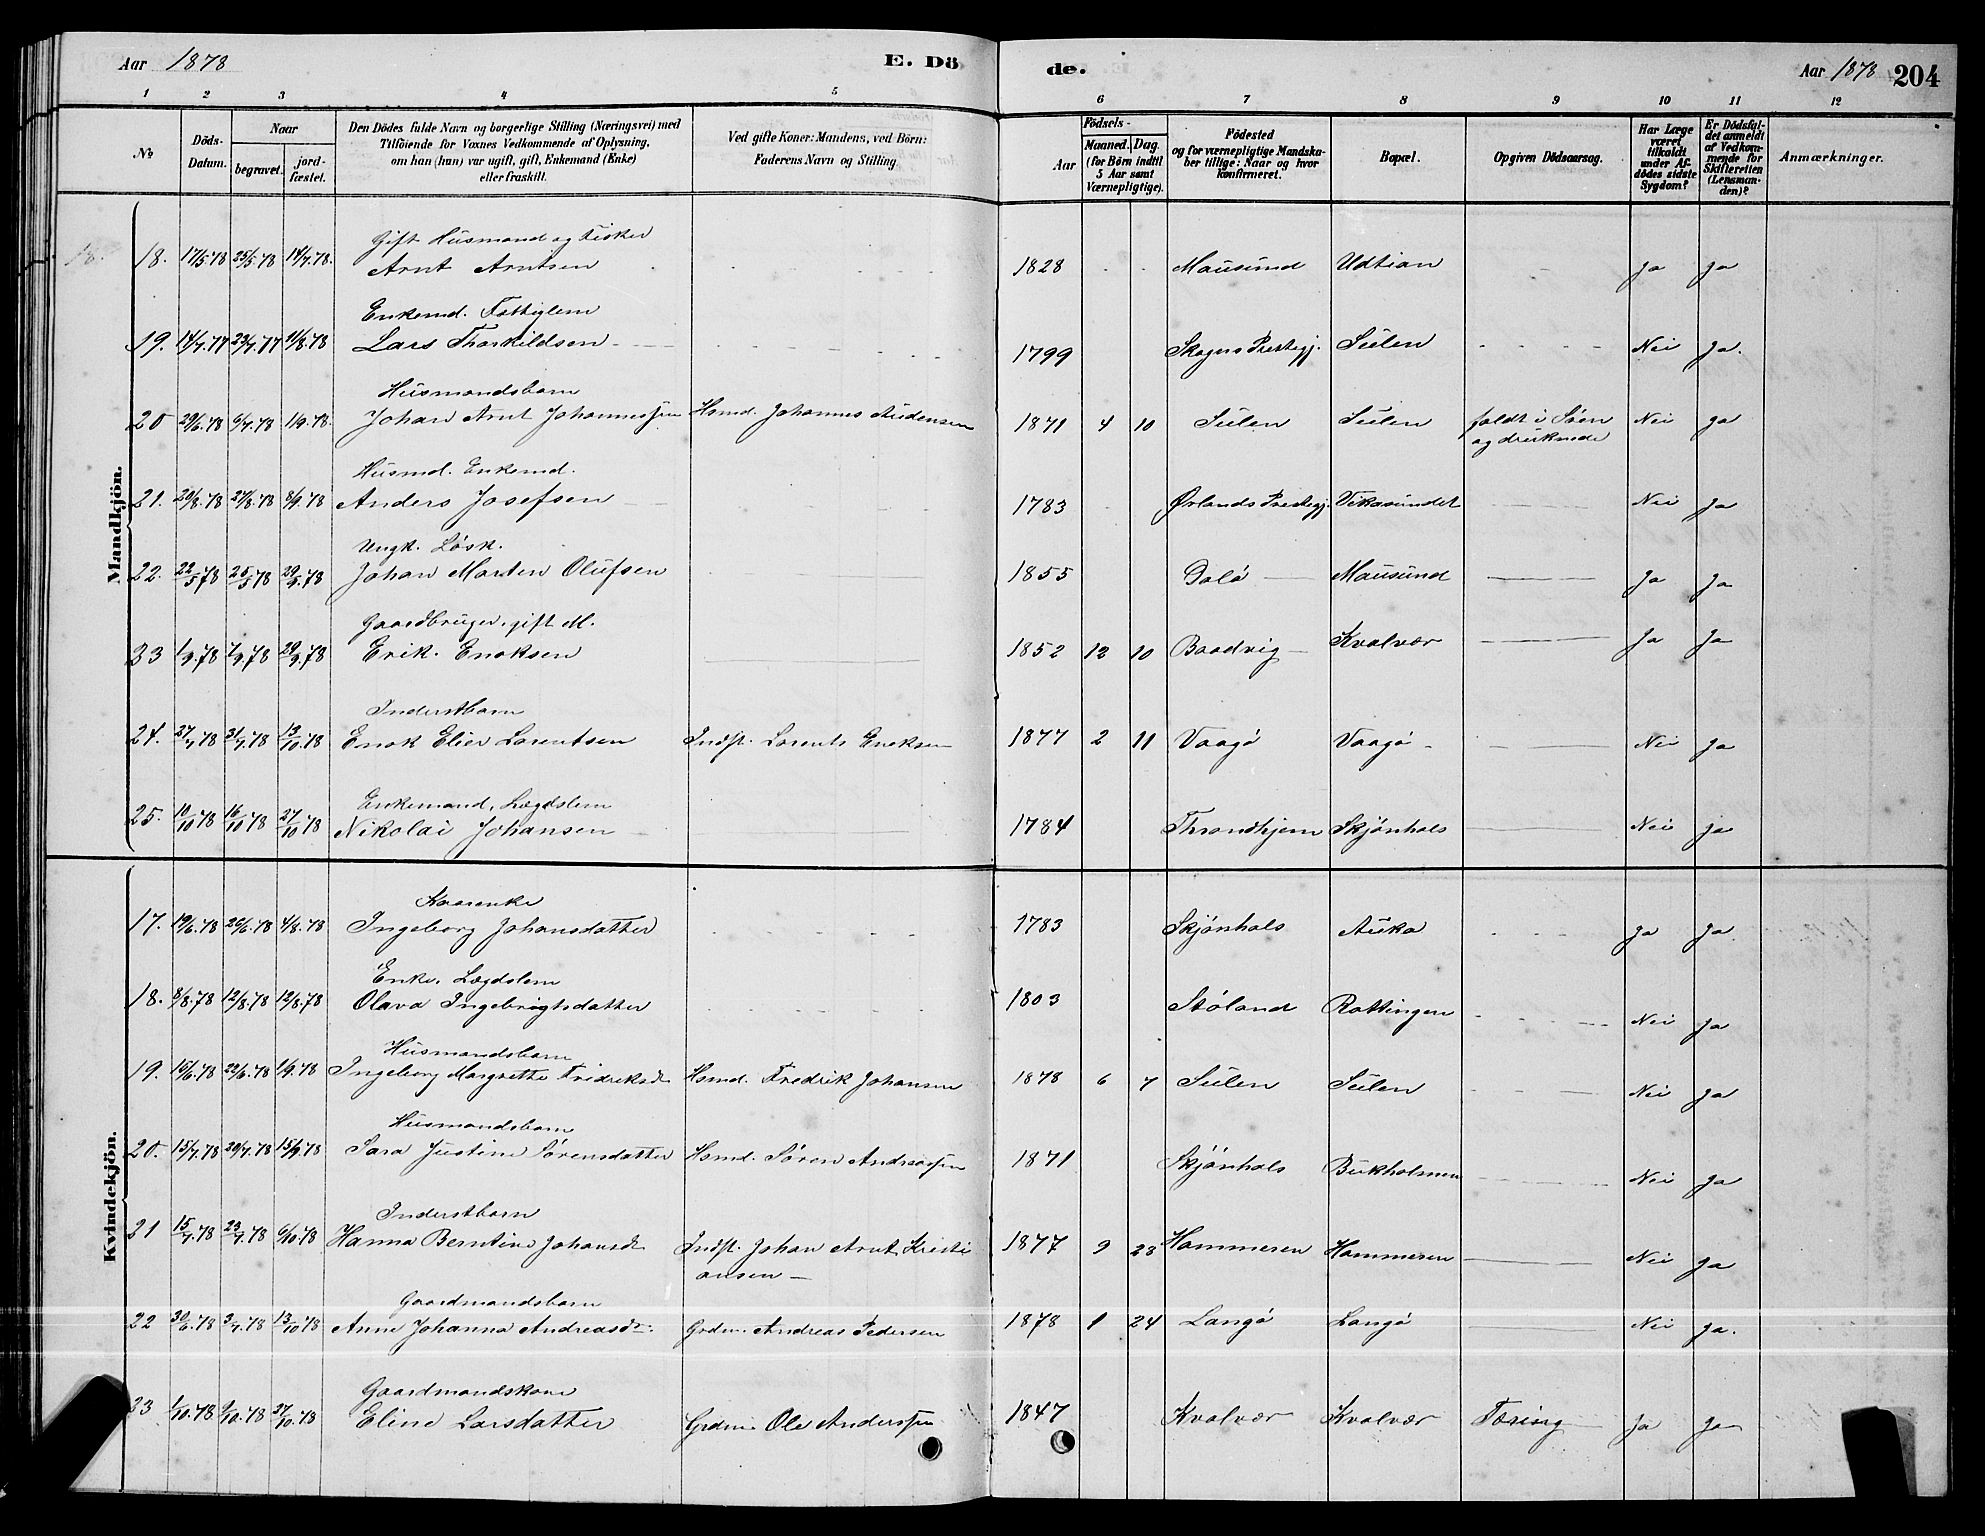 Aar 1878 E. Dö de. Aar 1878 204
1 2 3 4 5 6 7 8 9 10 11 12
No
Döds-Datum.
Naar
begravet.
jordfæstet.
Den Dödes fulde Navn og borgerlige Stilling (Næringsvei) med
Tilföiende for Voxnes Vedkommende af Oplysning,
om han (hun) var ugift, gift, Enkemand (Enke)
eller fraskilt.
Ved gifte Koner: Mandens, ved Börn:
Faderens Navn og Stilling.
Födsels-
Aar
Maaned. Dag.
(for Börn indtil
5 Aar samt
Værnepligtige).
Födested
og for værnepligtige Mandska-
ber tillige: Naar og hvor
konfirmeret.
Bopæl.
Opgiven Dödsaarsag.
Har Læge
været
tilkaldt
under Af-
dödes sidste
Sygdom?
Er Dödsfal-
det anmeldt
af Vedkom-
mende for
Skifteretten
(Lensman-
den)?
Anmærkninger.
Mandkjön.
Gift Husmand og Fisker
18. 17/5.78 25/5.78 14/7.78. Arnt Arntsen 1828 Mausund Udtian Ja Ja
Enkemd. Fattiglem
19. 14/7.77 23/7.77 11/8.78 Lars Thorkildsen 1799 Skogns Prestegj. Sulen Nei Ja.
Husmandsbarn
20 29/6.78 6/7.78 1/9.78. Johan Arnt Johannessen Hsmd. Johannes Audensen 1871 4 10 Sulen Sulen faldt i Søen Nei Ja
og druknede
Husmd. Enkemd.
21. 20/8.78 27/8.78 8/9.78 Anders Josefsen 1783 Ørlands Prestegj. Vikasundet Nei Ja
Ungk. Løsk.
22. 22/5.78 25/5.78 29/9.78 Johan Martin Olufsen 1855 Dalø Mausund Ja Ja
Gaardbruger, gift M.
23 1/9.78 7/9.78 29/9.78 Erik Enoksen 1852 12 10 Baadvig Kvalvær Ja Ja
Inderstbarn
24. 27/7.78 31/7.78 13/10.78 Enok Elier Lorentsen Indst. Lorents Enoksen 1877 2 11 Vaagø Vaagø Nei Ja
Enkemand, Lægdslem
25. 10/10.78 16/10.78 27/10.78 Nikolai Johansen 1784 Throndhjem Skjønhals Nei ja
Kvindekjön.
Kaarenke
17. 19/6.78 26/6.78 4/8.78 Ingeborg Johansdatter 1783 Skjønhals Auka Ja Ja.
Enke. Lægdslem
18. 8/8.78 12/8.78 12/8.78 Olava Ingebrigtsdatter 1803 Støland Rottingen Nei Ja
Husmandsbarn
19. 15/6.78 22/6.78 1/9.78 Ingeborg Margrethe Fredriksd. Hsmd. Fredrik Johansen 1878 6 7 Sulen Sulen Nei Ja
Husmandsbarn
20. 15/7.78 20/7.78 15/9.78 Sara Justine Sørensdatter Hsmd. Søren Andreassen 1871 Skjønhals Bukholmen Nei Ja
Inderstbarn
21 15/7.78 23/7.78 6/10.78 Hanna Berntine Johansd. Indst. Johan Arnt Kristi 1877 9 23 Hammeren Hammeren Nei Ja
ansen
Gaardmandsbarn
22 30/6.78 3/7.78 13/10.78 Anne Johanna Andreasdr. Grdm. Andreas Pedersen 1878 1 24 Langø Langø Nei Ja.
Gaardmandskone
23 1/10.78 9/10.78 27/10.78 Eline Larsdatter Grdm. Ole Anderssen 1847 Kvalvær Kvalvær Tæring Ja Ja